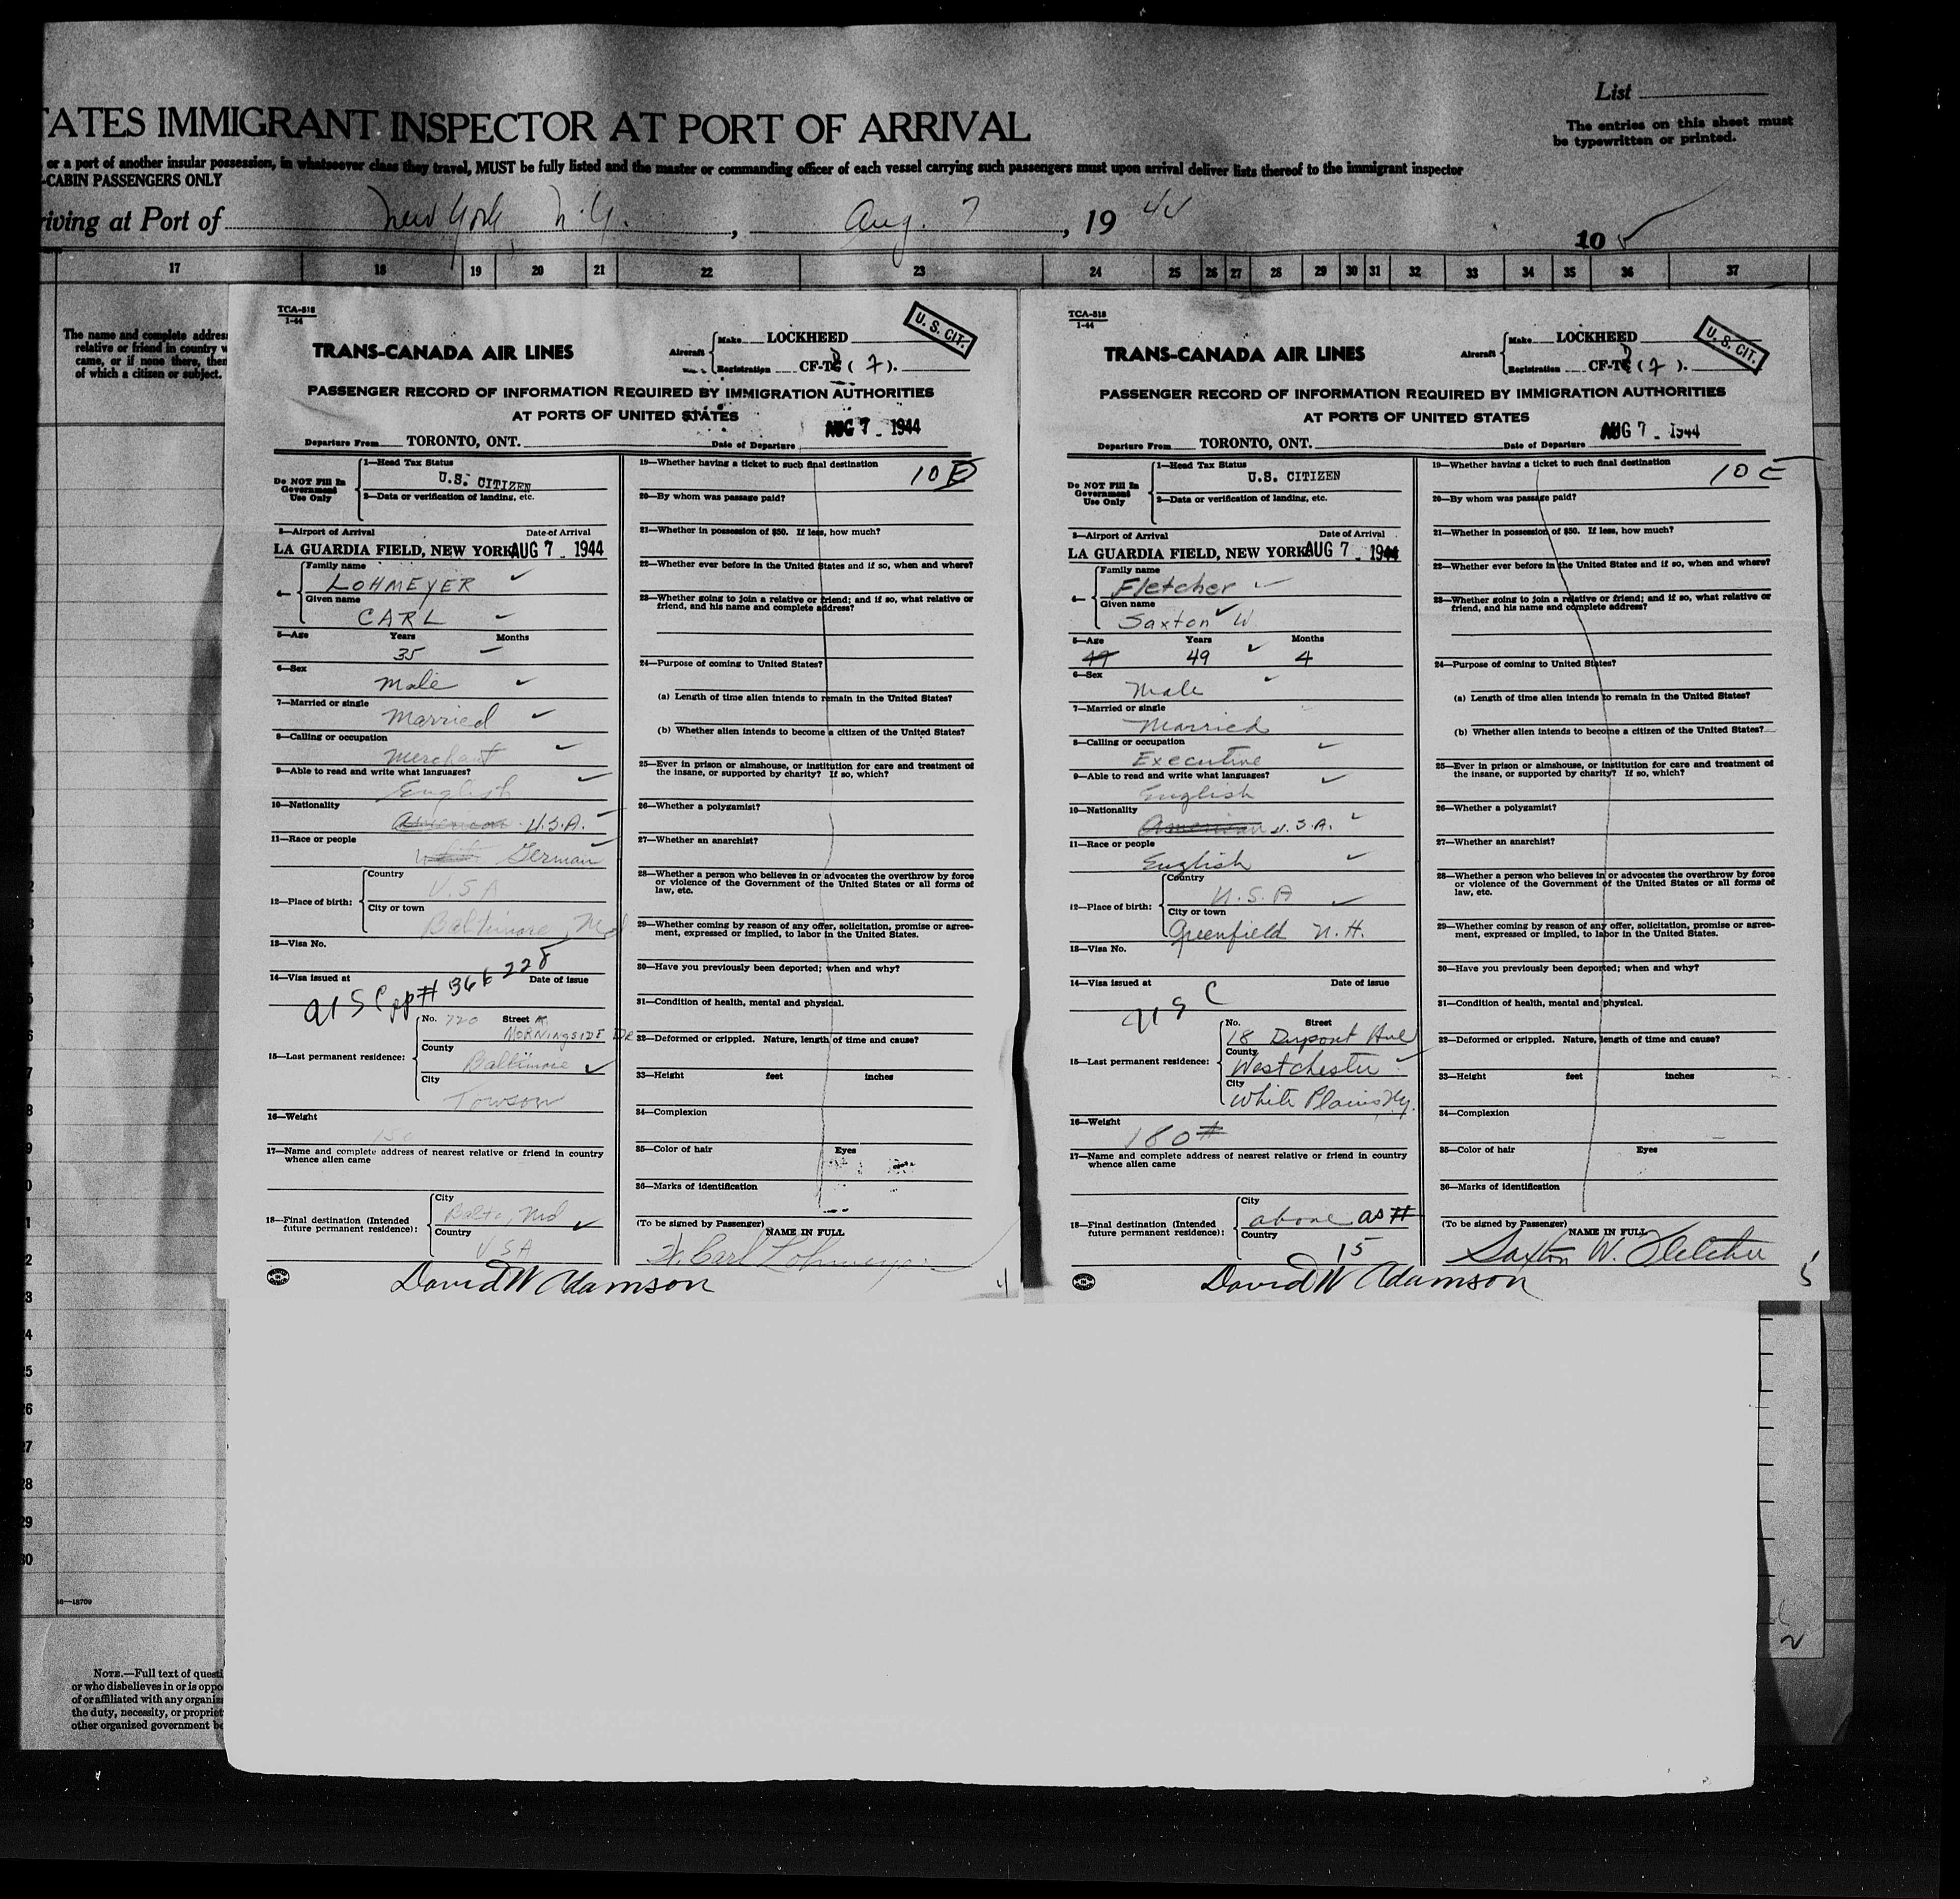 TATES IMMIGRANT INSPECTOR AT PORT OF ARRIVAL
List
The entries on this sheet must
be typewritten or printed.
or a port of another insular possession, in whatsoever class they travel, MUST be fully listed and the master or commanding officer of each vessel carrying such passengers must upon arrival deliver lists thereof to the immigrant inspector
-CABIN PASSENGERS ONLY
riving at Port of New York, N.Y. , Aug. 7 , 19 44
10
17 18 19 20 21 22 23 24 25 26 27 28 29 30 31 32 33 34 35 36 37
The name and complete address
relative or friend in country w
came, or if none there, then
of which a citizen or subject.
TCA-518
1-44
U. S. CIT.
TRANS-CANADA AIR LINES
Aircraft
Make LOCKHEED
Registration CF-T ( 7 ).
PASSENGER RECORD OF INFORMATION REQUIRED BY IMMIGRATION AUTHORITIES
AT PORTS OF UNITED STATES
Departure From TORONTO, ONT. Date of Departure AUG 7 - 1944
Do NOT Fill In
Government
Use Only
1—Head Tax Status
U.S. CITIZEN
2—Data or verification of landing, etc.
3—Airport of Arrival Date of Arrival
LA GUARDIA FIELD, NEW YORK AUG 7 - 1944
4—
Family name
LOHMEYER
Given name
CARL
5—Age Years Months
35
6—Sex
Male
7—Married or single
Married
8—Calling or occupation
Merchant
9—Able to read and write what languages?
English
10—Nationality
American U.S.A.
11—Race or people
German
12—Place of birth:
Country
U.S.A
City or town
Baltimore, Md
13—Visa No.
14—Visa issued at Date of issue
USC pp# 366228
15—Last permanent residence:
No. 720 Street
MORNINGSIDE DR
County
Baltimore
City
Towson
16—Weight
150
17—Name and complete address of nearest relative or friend in country
whence alien came
18—Final destination (Intended
future permanent residence):
City
Balto, Md
Country
USA
10 E
19—Whether having a ticket to such final destination
20—By whom was passage paid?
21—Whether in possession of $50. If less, how much?
22—Whether ever before in the United States and if so, when and where?
23—Whether going to join a relative or friend; and if so, what relative or
friend, and his name and complete address?
24—Purpose of coming to United States?
(a) Length of time alien intends to remain in the United States?
(b) Whether alien intends to become a citizen of the United States?
25—Ever in prison or almshouse, or institution for care and treatment of
the insane, or supported by charity? If so, which?
26—Whether a polygamist?
27—Whether an anarchist?
28—Whether a person who believes in or advocates the overthrow by force
or violence of the Government of the United States or all forms of
law, etc.
29—Whether coming by reason of any offer, solicitation, promise or agree-
ment, expressed or implied, to labor in the United States.
30—Have you previously been deported; when and why?
31—Condition of health, mental and physical.
32—Deformed or crippled. Nature, length of time and cause?
33—Height feet inches
34—Complexion
35—Color of hair Eyes
36—Marks of identification
(To be signed by Passenger) NAME IN FULL
Carl Lohmeyer
David W Adamson
4
TCA-518
1-44
U. S. CIT.
TRANS-CANADA AIR LINES
Aircraft
Make LOCKHEED
Registration CF-T ( 7 ).
PASSENGER RECORD OF INFORMATION REQUIRED BY IMMIGRATION AUTHORITIES
AT PORTS OF UNITED STATES
Departure From TORONTO, ONT. Date of Departure AUG 7 - 1944
Do NOT Fill In
Government
Use Only
1—Head Tax Status
U.S. CITIZEN
2—Data or verification of landing, etc.
3—Airport of Arrival Date of Arrival
LA GUARDIA FIELD, NEW YORK AUG 7 - 1944
4—
Family name
Fletcher
Given name
Saxton W
5—Age Years Months
49 49 4
6—Sex
Male
7—Married or single
Married
8—Calling or occupation
Executive
9—Able to read and write what languages?
English
10—Nationality
American U.S.A.
11—Race or people
English
12—Place of birth:
Country
U.S.A
City or town
Greenfield N.H.
13—Visa No.
14—Visa issued at Date of issue
USC
15—Last permanent residence:
No. Street
18 Dupont Ave
County
Westchester
City
White Plains, N.Y.
16—Weight
180#
17—Name and complete address of nearest relative or friend in country
whence alien came
18—Final destination (Intended
future permanent residence):
City
above as #
Country
15
10 E
19—Whether having a ticket to such final destination
20—By whom was passage paid?
21—Whether in possession of $50. If less, how much?
22—Whether ever before in the United States and if so, when and where?
23—Whether going to join a relative or friend; and if so, what relative or
friend, and his name and complete address?
24—Purpose of coming to United States?
(a) Length of time alien intends to remain in the United States?
(b) Whether alien intends to become a citizen of the United States?
25—Ever in prison or almshouse, or institution for care and treatment of
the insane, or supported by charity? If so, which?
26—Whether a polygamist?
27—Whether an anarchist?
28—Whether a person who believes in or advocates the overthrow by force
or violence of the Government of the United States or all forms of
law, etc.
29—Whether coming by reason of any offer, solicitation, promise or agree-
ment, expressed or implied, to labor in the United States.
30—Have you previously been deported; when and why?
31—Condition of health, mental and physical.
32—Deformed or crippled. Nature, length of time and cause?
33—Height feet inches
34—Complexion
35—Color of hair Eyes
36—Marks of identification
(To be signed by Passenger) NAME IN FULL
Saxton W. Fletcher
David W Adamson
5
16—18700
NOTE.—Full text of questi
or who disbelieves in or is oppo
of or affiliated with any organiz
the duty, necessity, or propriet
other organized government be
2